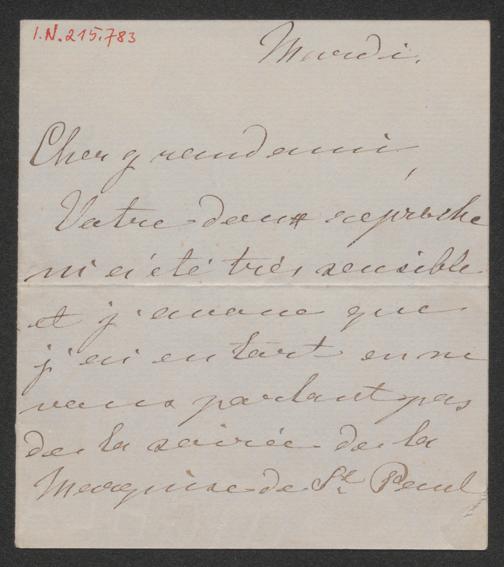 I.N. 215.783
Mardi.
Cher grand ami,
Votre doux reproche
m'a été très sensible
et j'avoue que
j'ai eu tort en ne
vous parlant pas
de la soirée de la
Marquise de St. Paul